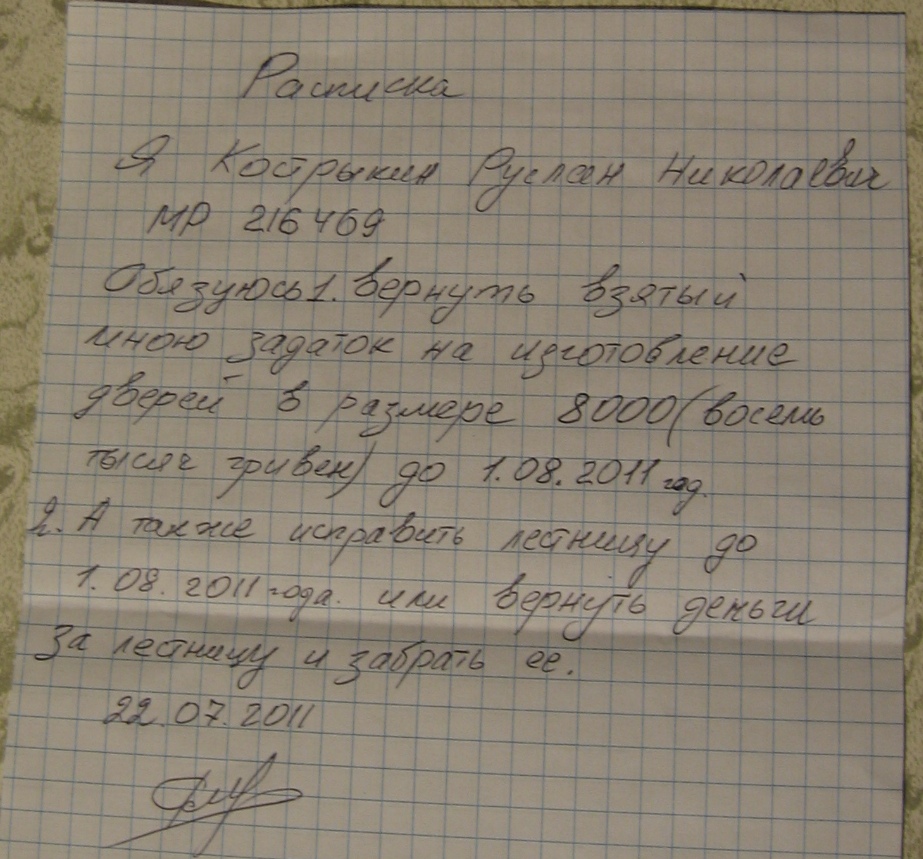 Расписка
Я Кострыкин Руслан Николаевич
МР 216469
Обязуюсь 1. вернуть взятый
мною задаток на изготовление
дверей в размере 8000 (восемь
тысяч гривен) до 1.08.2011 год.
2. А также исправить лестницу до
1.08.2011 года. или вернуть деньги
за лестницу и забрать ее.
22.07.2011